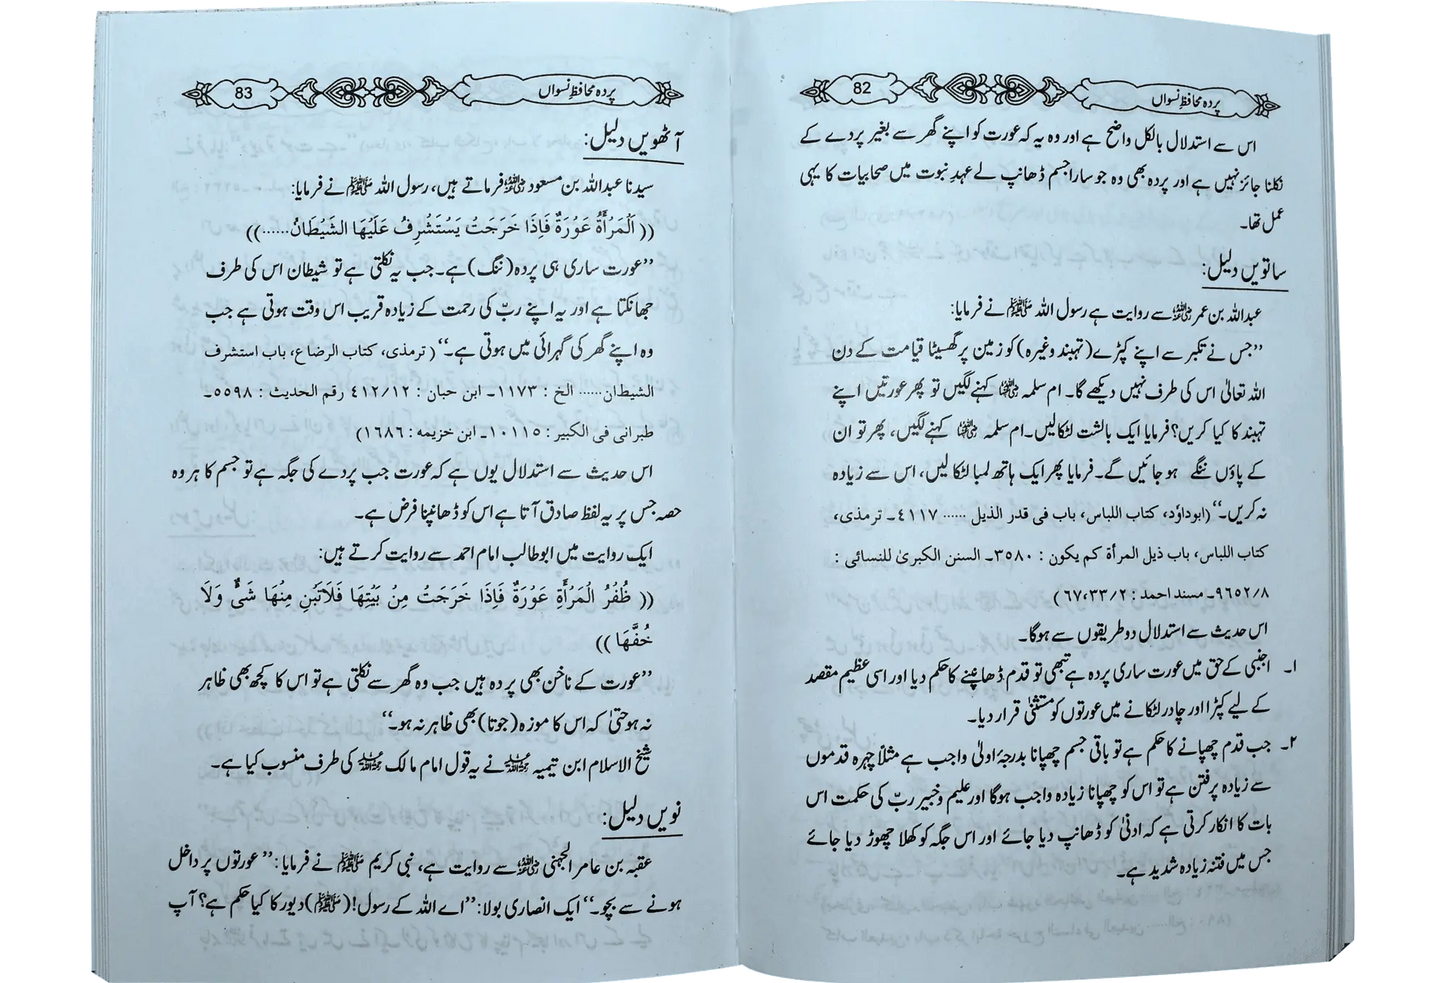 پردہ محافظِ نسواں
82
اس سے استدلال بالکل واضح ہے اور وہ یہ کہ عورت کو اپنے گھر سے بغیر پردے کے
نکلنا جائز نہیں ہے اور پردہ بھی وہ جو سارا جسم ڈھانپ لے عہدِ نبوت میں صحابیات کا یہی
عمل تھا۔
ساتویں دلیل:
عبداللہ بن عمر رضی اللہ عنہ سے روایت ہے رسول اللہ ﷺ نے فرمایا:
’’جس نے تکبر سے اپنے کپڑے (تہبند وغیرہ) کو زمین پر گھسیٹا قیامت کے دن
اللہ تعالیٰ اس کی طرف نہیں دیکھے گا۔ ام سلمہ رضی اللہ عنہا کہنے لگیں تو پھر عورتیں اپنے
تہبند کا کیا کریں؟ فرمایا ایک بالشت لٹکا لیں۔ ام سلمہ رضی اللہ عنہا کہنے لگیں، پھر تو ان
کے پاؤں ننگے ہو جائیں گے۔ فرمایا پھر ایک ہاتھ لمبا لٹکا لیں، اس سے زیادہ
نہ کریں۔‘‘ (ابوداؤد، کتاب اللباس، باب فی قدر الذیل ...... ٤١١٧۔ ترمذی،
کتاب اللباس، باب ذیل المرأة کم یکون : ٣٥٨٠۔ السنن الکبریٰ للنسائی :
٩٦٥٢/٨۔ مسند احمد : ٦٧،٣٣/٢)
اس حدیث سے استدلال دو طریقوں سے ہوگا۔
۱۔ اجنبی کے حق میں عورت ساری پردہ ہے تبھی تو قدم ڈھانپنے کا حکم دیا اور اسی عظیم مقصد
کے لیے کپڑا اور چادر لٹکانے میں عورتوں کو مستثنیٰ قرار دیا۔
۲۔ جب قدم چھپانے کا حکم ہے تو باقی جسم چھپانا بدرجۂ اولیٰ واجب ہے مثلاً چہرہ قدموں
سے زیادہ پرفتن ہے تو اس کو چھپانا زیادہ واجب ہوگا اور علیم و خبیر ربّ کی حکمت اس
بات کا انکار کرتی ہے کہ ادنیٰ کو ڈھانپ دیا جائے اور اس جگہ کو کھلا چھوڑ دیا جائے
جس میں فتنہ زیادہ شدید ہے۔
پردہ محافظِ نسواں
83
آٹھویں دلیل:
سیدنا عبداللہ بن مسعود رضی اللہ عنہ فرماتے ہیں، رسول اللہ ﷺ نے فرمایا:
(( اَلْمَرْأَةُ عَوْرَةٌ فَاِذَا خَرَجَتْ يَسْتَشْرِفُ عَلَيْهَا الشَّيْطَانُ......))
’’عورت ساری ہی پردہ (ننگ) ہے۔ جب یہ نکلتی ہے تو شیطان اس کی طرف
جھانکتا ہے اور یہ اپنے ربّ کی رحمت کے زیادہ قریب اس وقت ہوتی ہے جب
وہ اپنے گھر کی گہرائی میں ہوتی ہے۔‘‘ (ترمذی، کتاب الرضاع، باب استشرف
الشیطان...... الخ : ١١٧٣۔ ابن حبان : ٤١٢/١٢ رقم الحدیث : ٥٥٩٨۔
طبرانی فی الکبیر : ١٠١١٥۔ ابن خزیمه : ١٦٨٦)
اس حدیث سے استدلال یوں ہے کہ عورت جب پردے کی جگہ ہے تو جسم کا ہر وہ
حصہ جس پر یہ لفظ صادق آتا ہے اس کو ڈھانپنا فرض ہے۔
ایک روایت میں ابوطالب امام احمد سے روایت کرتے ہیں:
(( ظُفُرُ الْمَرْأَةِ عَوْرَةٌ فَاِذَا خَرَجَتْ مِنْ بَيْتِهَا فَلَاتَبْنِ مِنْهَا شَيْءٌ وَلَا
خُفَّهَا ))
’’عورت کے ناخن بھی پردہ ہیں جب وہ گھر سے نکلتی ہے تو اس کا کچھ بھی ظاہر
نہ ہو حتیٰ کہ اس کا موزہ (جوتا) بھی ظاہر نہ ہو۔‘‘
شیخ الاسلام ابن تیمیہ رحمہ اللہ نے یہ قول امام مالک رحمہ اللہ کی طرف منسوب کیا ہے۔
نویں دلیل:
عقبہ بن عامر الجہنی رضی اللہ عنہ سے روایت ہے، نبی کریم ﷺ نے فرمایا: ’’عورتوں پر داخل
ہونے سے بچو۔‘‘ ایک انصاری بولا: ’’اے اللہ کے رسول! (ﷺ) دیور کا کیا حکم ہے؟ آپ